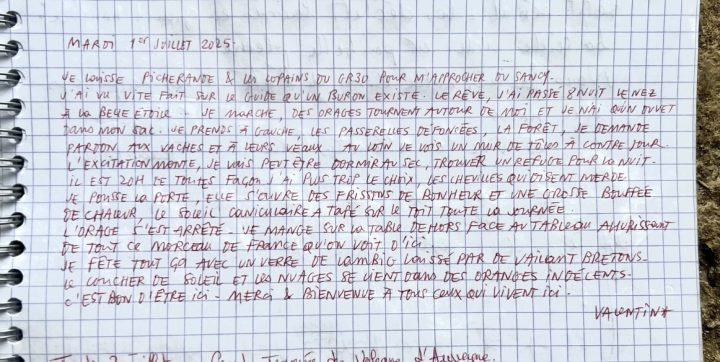 MARDI 1er JUILLET 2025.
JE LAISSE PICHERANDE & LES COPAINS DU GR30 POUR M'APPROCHER DU SANCY.
J'AI VU VITE FAIT SUR LE GUIDE QU'UN BURON EXISTE. LE RÊVE, J'AI PASSÉ 8 NUIT LE NEZ
À LA BELLE ETOILE.. JE MARCHE, DES ORAGES TOURNENT AUTOUR DE MOI ET JE N'AI QU'UN DUVET
DANS MON SAC. JE PRENDS À GAUCHE, LES PASSERELLES DÉFONCÉES, LA FORÊT, JE DEMANDE
PARDON AUX VACHES ET À LEURS VEAUX. AU LOIN JE VOIS UN MUR DE TÔLES À CONTRE JOUR.
L'EXCITATION MONTE, JE VAIS PEUT ÊTRE DORMIR AU SEC, TROUVER UN REFUGE POUR LA NUIT.
IL EST 20H DE TOUTES FAÇON J'AI PLUS TROP LE CHOIX, LES CHEVILLES QUI DISENT MERDE.
JE POUSSE LA PORTE, ELLE S'OUVRE DES FRISSONS DE BONHEUR ET UNE GROSSE BOUFFÉE
DE CHALEUR, LE SOLEIL CANICULAIRE A TAPÉ SUR LE TOIT TOUTE LA JOURNÉE.
L'ORAGE S'EST ARRÊTÉ - JE MANGE SUR LA TABLE DEHORS FACE AU TABLEAU AHURISSANT
DE TOUT CE MORCEAU DE FRANCE QU'ON VOIT D'ICI.
JE FÊTE TOUT ÇA AVEC UN VERRE DE LAMBIG LAISSÉ PAR DE VAILLANT BRETONS.
LE COUCHER DE SOLEIL ET LES NUAGES SE LIENT DANS DES ORANGES INDÉCENTS.
C'EST BON D'ÊTRE ICI - MERCI & BIENVENUE À TOUS CEUX QUI VIVENT ICI.
VALENTIN*
Volcans d'Auvergne.